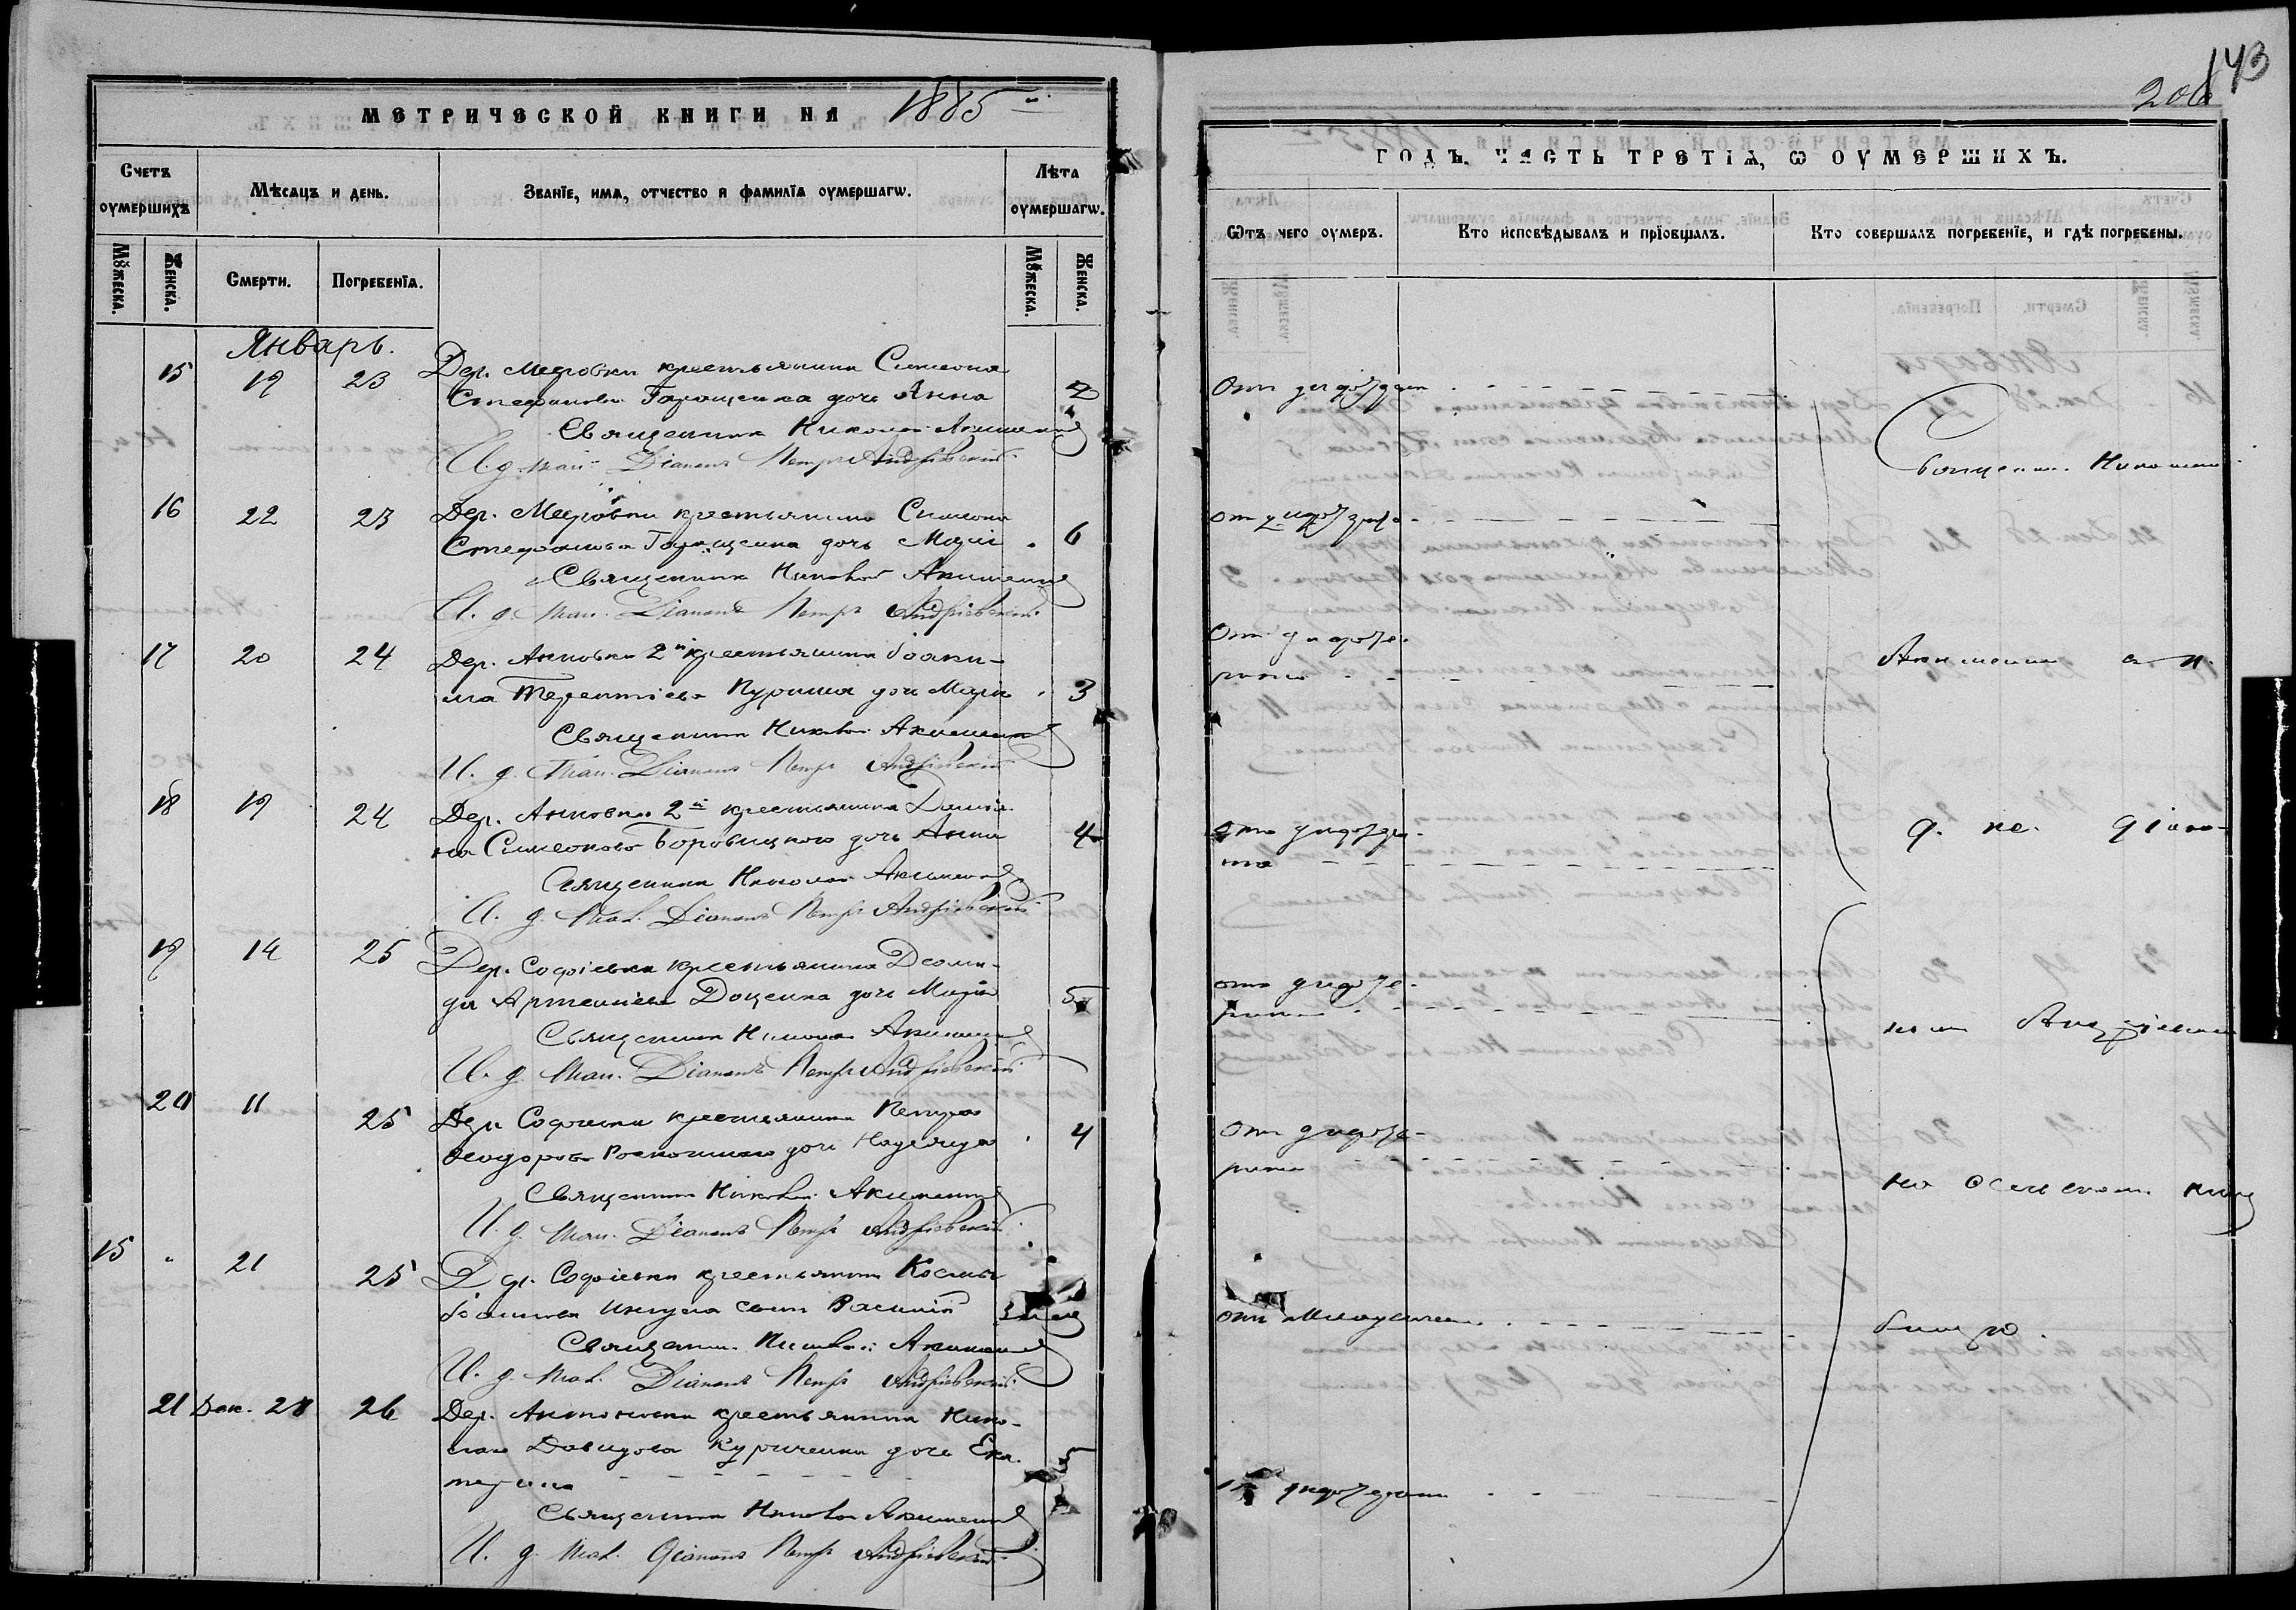 МЕТРИЧЕСКОЙ КНИГИ НА 1885
Счетъ оумершихъ
Мѣсяцъ и день.
Званїе, имя, отчество и фамилїя оумершагѡ.
Лѣта оумершагѡ.
Мꙋжеска.
Женска.
Смерти.
Погребенїя.
Мꙋжеска.
Женска.
Январь.
15 19 23 Дер. Медровки крестьянина Симеона
Стефанова Геращенка дочь Анна
Священникъ Николай Акименко
И. д. Діаконъ Петръ Андріевскій
16 22 23 Дер. Медровки крестьянина Симеона
Стефанова Геращенка дочь Марія 6
Священникъ Николай Акименко
И. д. Діаконъ Петръ Андріевскій
17 20 24 Дер. Анновки 2й крестьянина Іоаки-
ма Терентіева дочь Марія 3
Священникъ Николай Акименко
И. д. Діаконъ Петръ Андріевскій
18 19 24 Дер. Анновки 2й крестьянина Даміа-
на Симеонова Боровицкого дочь Анна 4
Священникъ Николай Акименко
И. д. Діаконъ Петръ Андріевскій
19 14 25 Дер. Софіевки крестьянина Діоми-
да Артеміева Доценка дочь Марія 5
Священникъ Николай Акименко
И. д. Діаконъ Петръ Андріевскій
20 11 25 Дер. Софіевки крестьянина Петра
Феодорова дочь Надежда 4
Священникъ Николай Акименко
И. д. Діаконъ Петръ Андріевскій
15 " 21 25 Дер. Софіевки крестьянина Космы
сынъ Василій
Священникъ Николай Акименко
И. д. Діаконъ Петръ Андріевскій
21 Дек. 28 26 Дер. Антоновки крестьянина Нико-
лая Давидова Куриченка дочь Ека-
терина 5
Священникъ Николай Акименко
И. д. Діаконъ Петръ Андріевскій
206 143
ГОДЪ, ЧАСТЬ ТРЕТІЯ, Ѡ ОУМЕРШИХЪ.
Ѿтъ чего оумеръ.
Кто исповѣдывалъ и прїобщалъ.
Кто совершалъ погребенїе, и гдѣ погребены.
Отъ дифтерита
Священникъ Николай
отъ дифтерита
Отъ дифте-
рита
Акименко съ и.
отъ дифтери-
та
д. пс. Діако-
отъ дифте-
рита
номъ Андріевскимъ
Отъ дифте-
рита
на сельскомъ клад
отъ младенческой
бищѣ.
отъ дифтерита